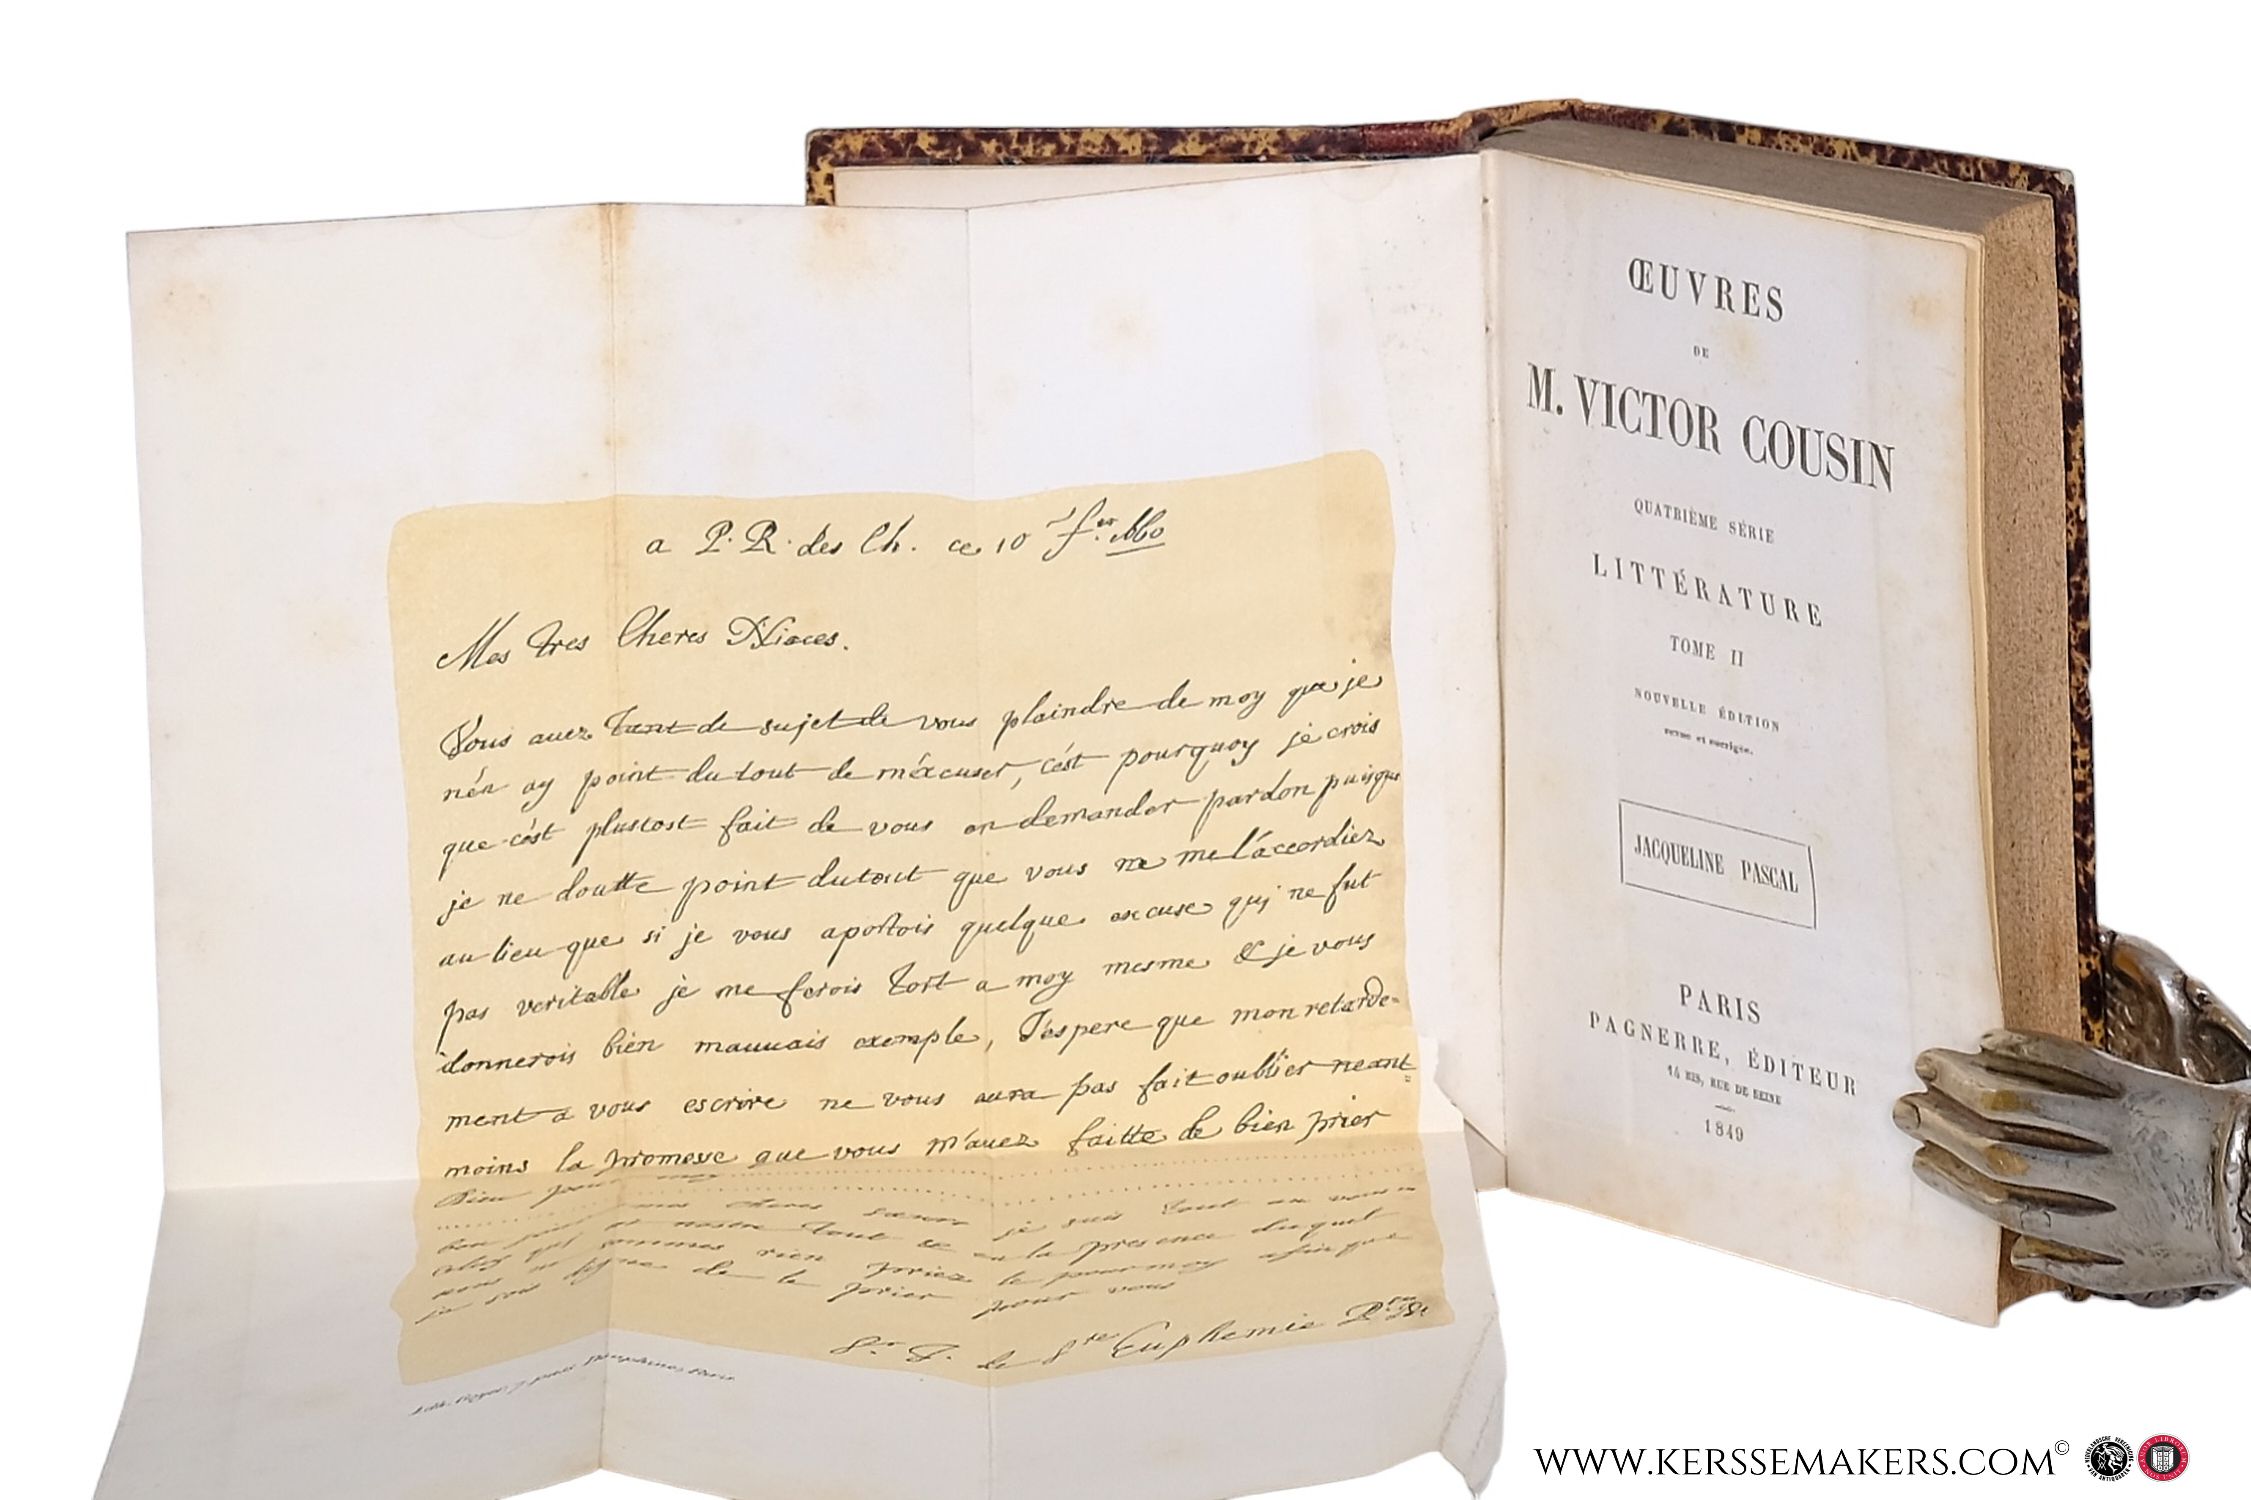 a P. R. des Ch. ce 10 f.er 1660
Mes tres Cheres Nieces.
Vous auez tant de sujet de vous plaindre de moy que je
n'en ay point du tout de m'excuser, c'est pourquoy je crois
que c'est plustost fait de vous en demander pardon puisque
je ne doutte point du tout que vous ne me l'accordiez
au lieu que si je vous aportois quelque excuse qui ne fut
pas veritable je me ferois tort a moy mesme & je vous
donnerois bien mauuais exemple, J'espere que mon retarde=
ment a vous escrire ne vous aura pas fait oublier neant=
moins la promesse que vous m'auez faitte de bien prier
Dieu pour moy
mes cheres soeurs je suis tout en
et nostre tout & en la presence duquel
nous ne sommes rien priez le pour moy afin que
je sois digne de le prier pour vous
Sr. J. de Ste Euphemie
ŒUVRES
DE
M. VICTOR COUSIN
QUATRIÈME SÉRIE
LITTÉRATURE
TOME II
NOUVELLE ÉDITION
revue et corrigée.
JACQUELINE PASCAL
PARIS
PAGNERRE, ÉDITEUR
14 BIS, RUE DE SEINE
1849
WWW.KERSSEMAKERS.COM©